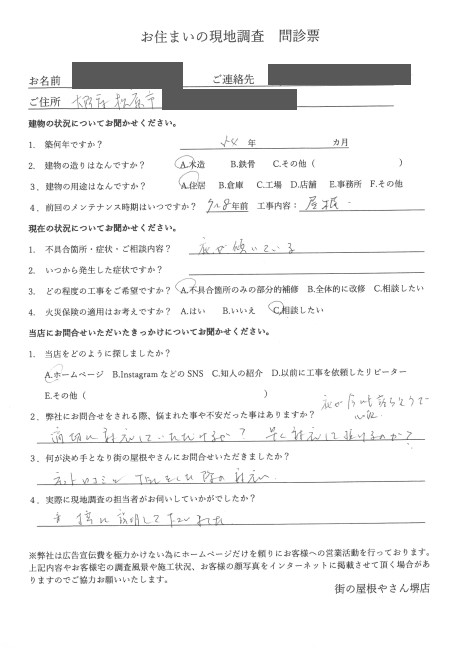 お住まいの現地調査　問診票
お名前　ご連絡先
ご住所　大阪府松原市
建物の状況についてお聞かせください。
1. 築何年ですか？　54 年　カ月
2. 建物の造りはなんですか？　A.木造　B.鉄骨　C.その他（　）
3. 建物の用途はなんですか？　A.住居　B.倉庫　C.工場　D.店舗　E.事務所　F.その他
4. 前回のメンテナンス時期はいつですか？　7〜8年前　工事内容：屋根
現在の状況についてお聞かせください。
1. 不具合箇所・症状・ご相談内容？　瓦が傾いている
2. いつから発生した症状ですか？
3. どの程度の工事をご希望ですか？　A.不具合箇所のみの部分的補修　B.全体的に改修　C.相談したい
4. 火災保険の適用はお考えですか？　A.はい　B.いいえ　C.相談したい
当店にお問合せいただいたきっかけについてお聞かせください。
1. 当店をどのように探しましたか？
A.ホームページ　B.InstagramなどのSNS　C.知人の紹介　D.以前に工事を依頼したリピーター
E.その他（　）
2. 弊社にお問合せをされる際、悩まれた事や不安だった事はありますか？　瓦が今にも落ちそうで心配
適切に対応していただけるか？　早く対応して頂けるか？
3. 何が決め手となり街の屋根やさんにお問合せいただきましたか？
ネット口コミ　TELをした際の対応
4. 実際に現地調査の担当者がお伺いしていかがでしたか？
説明して
※弊社は広告宣伝費を極力かけない為にホームページだけを頼りにお客様への営業活動を行っております。
上記内容やお客様宅の調査風景や施工状況、お客様の顔写真をインターネットに掲載させて頂く場合があ
りますのでご協力お願いいたします。
街の屋根やさん堺店